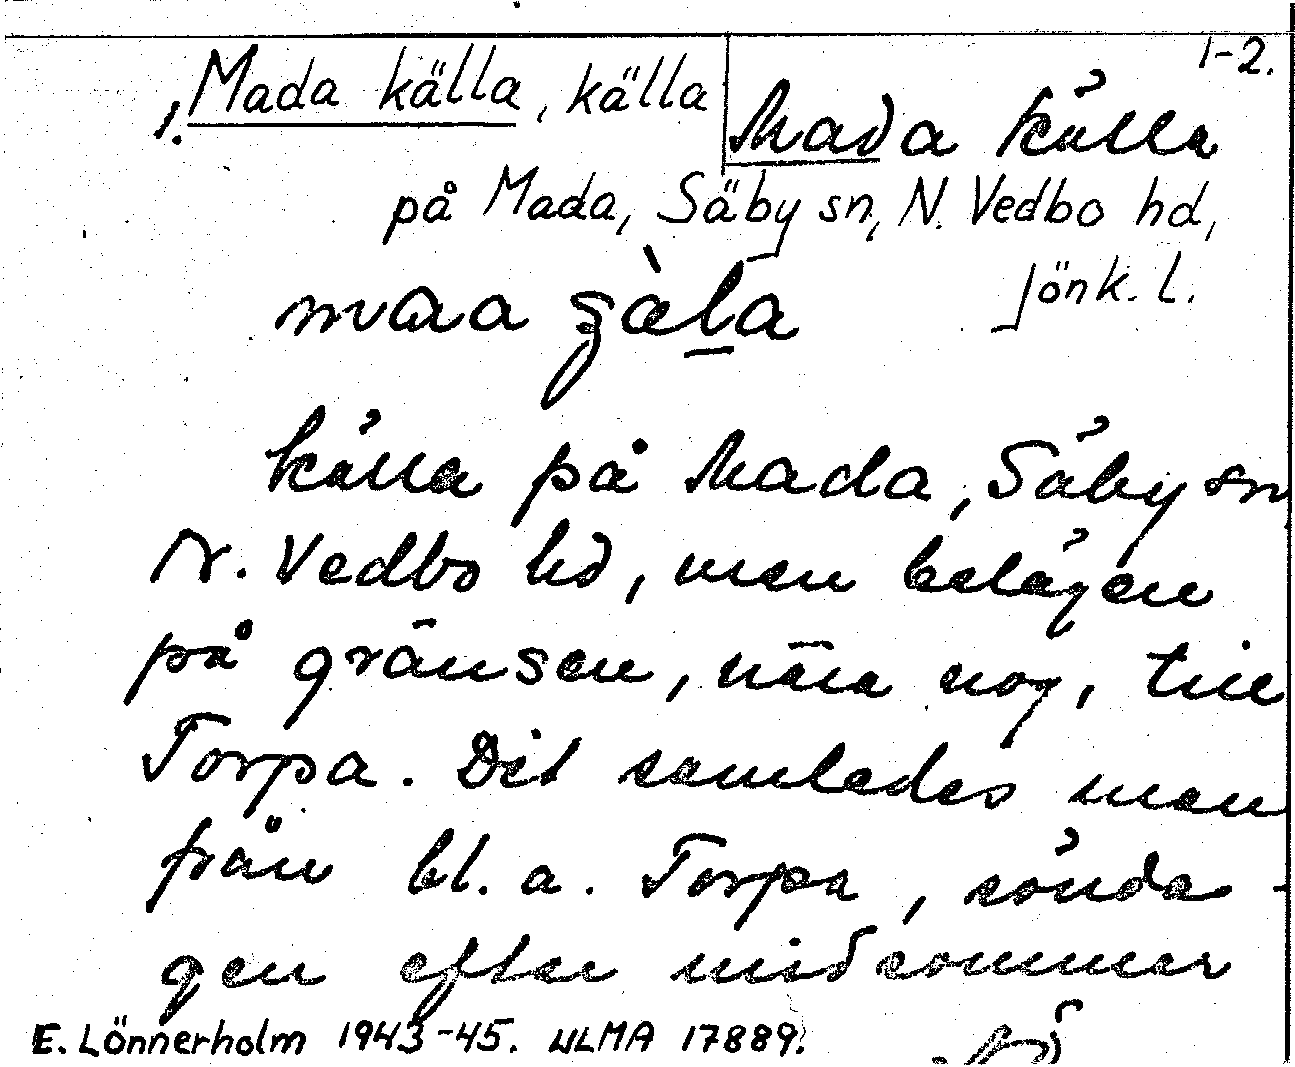 1-2.
1. Mada källa, källa
Mada källa
på Mada, Säby sn, N. Vedbo hd,
Jönk. l.
källa på Mada, Säby sn
N. Vedbo hd, men belägen
på gränsen, nära nog, till
Torpa. Dit samlades man
från bl. a. Torpa, sönda-
gen efter midsommar
E. Lönnerholm 1943-45. ULMA 17889.